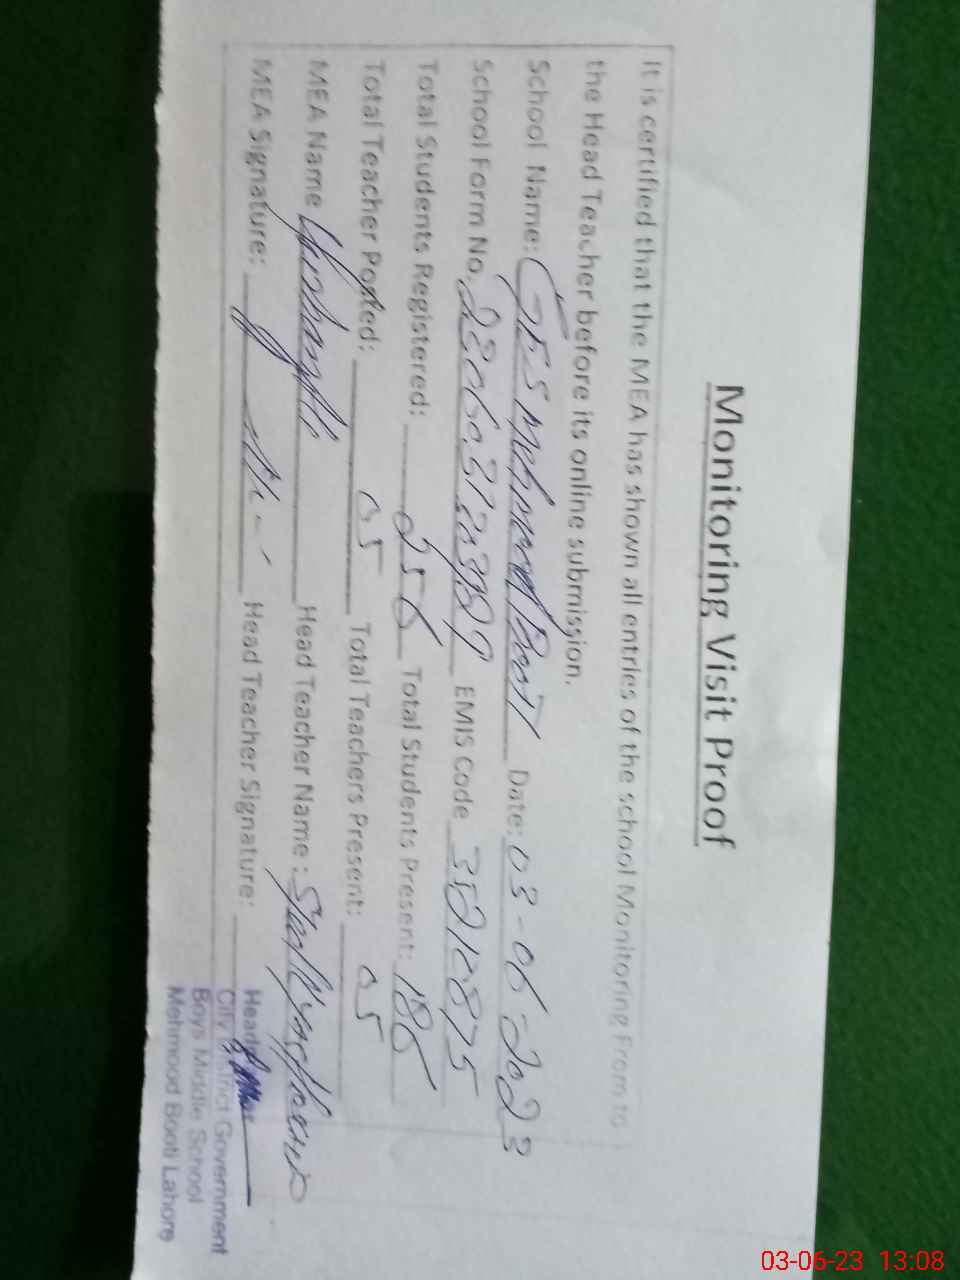 Monitoring Visit Proof
It is certified that the MEA has shown all entries of the school Monitoring From to
the Head Teacher before its online submission.
School Name: Mehmood Booti Date: 03-06-2023
School Form No. EMIS Code
Total Students Registered: 256 Total Students Present: 186
Total Teacher Posted: 05 Total Teachers Present: 05
MEA Name Head Teacher Name :
MEA Signature: Head Teacher Signature:
City District Government
Boys Middle School
Mehmood Booti Lahore
03-06-23 13:08